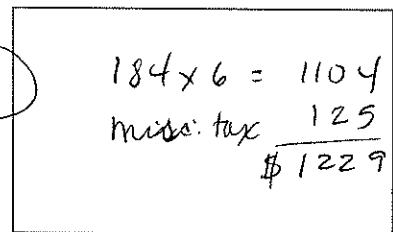 184 x 6 = 1104
misc. tax 125
$ 1229